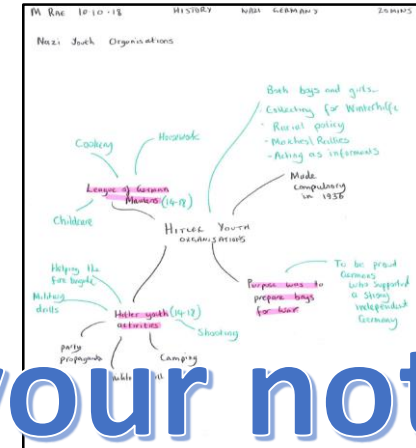 M Rae 10-10-18 HISTORY NAZI GERMANY 25 MINS
Nazi Youth Organisations
Both boys and girls...
- Collecting for Winterhilfe
- Racial policy
- Marches/Rallies
- Acting as informants
Made
compulsory
in 1936
Cooking
Housework
League of German
Maidens (14-18)
Childcare
HITLER YOUTH
ORGANISATIONS
To be proud
Germans
who supported
a strong
independent
Germany
Purpose was to
prepare boys
for war
Helping the
fire brigade
Military
drills
Hitler youth (14-18)
activities
Shooting
party
propaganda
Camping
your not